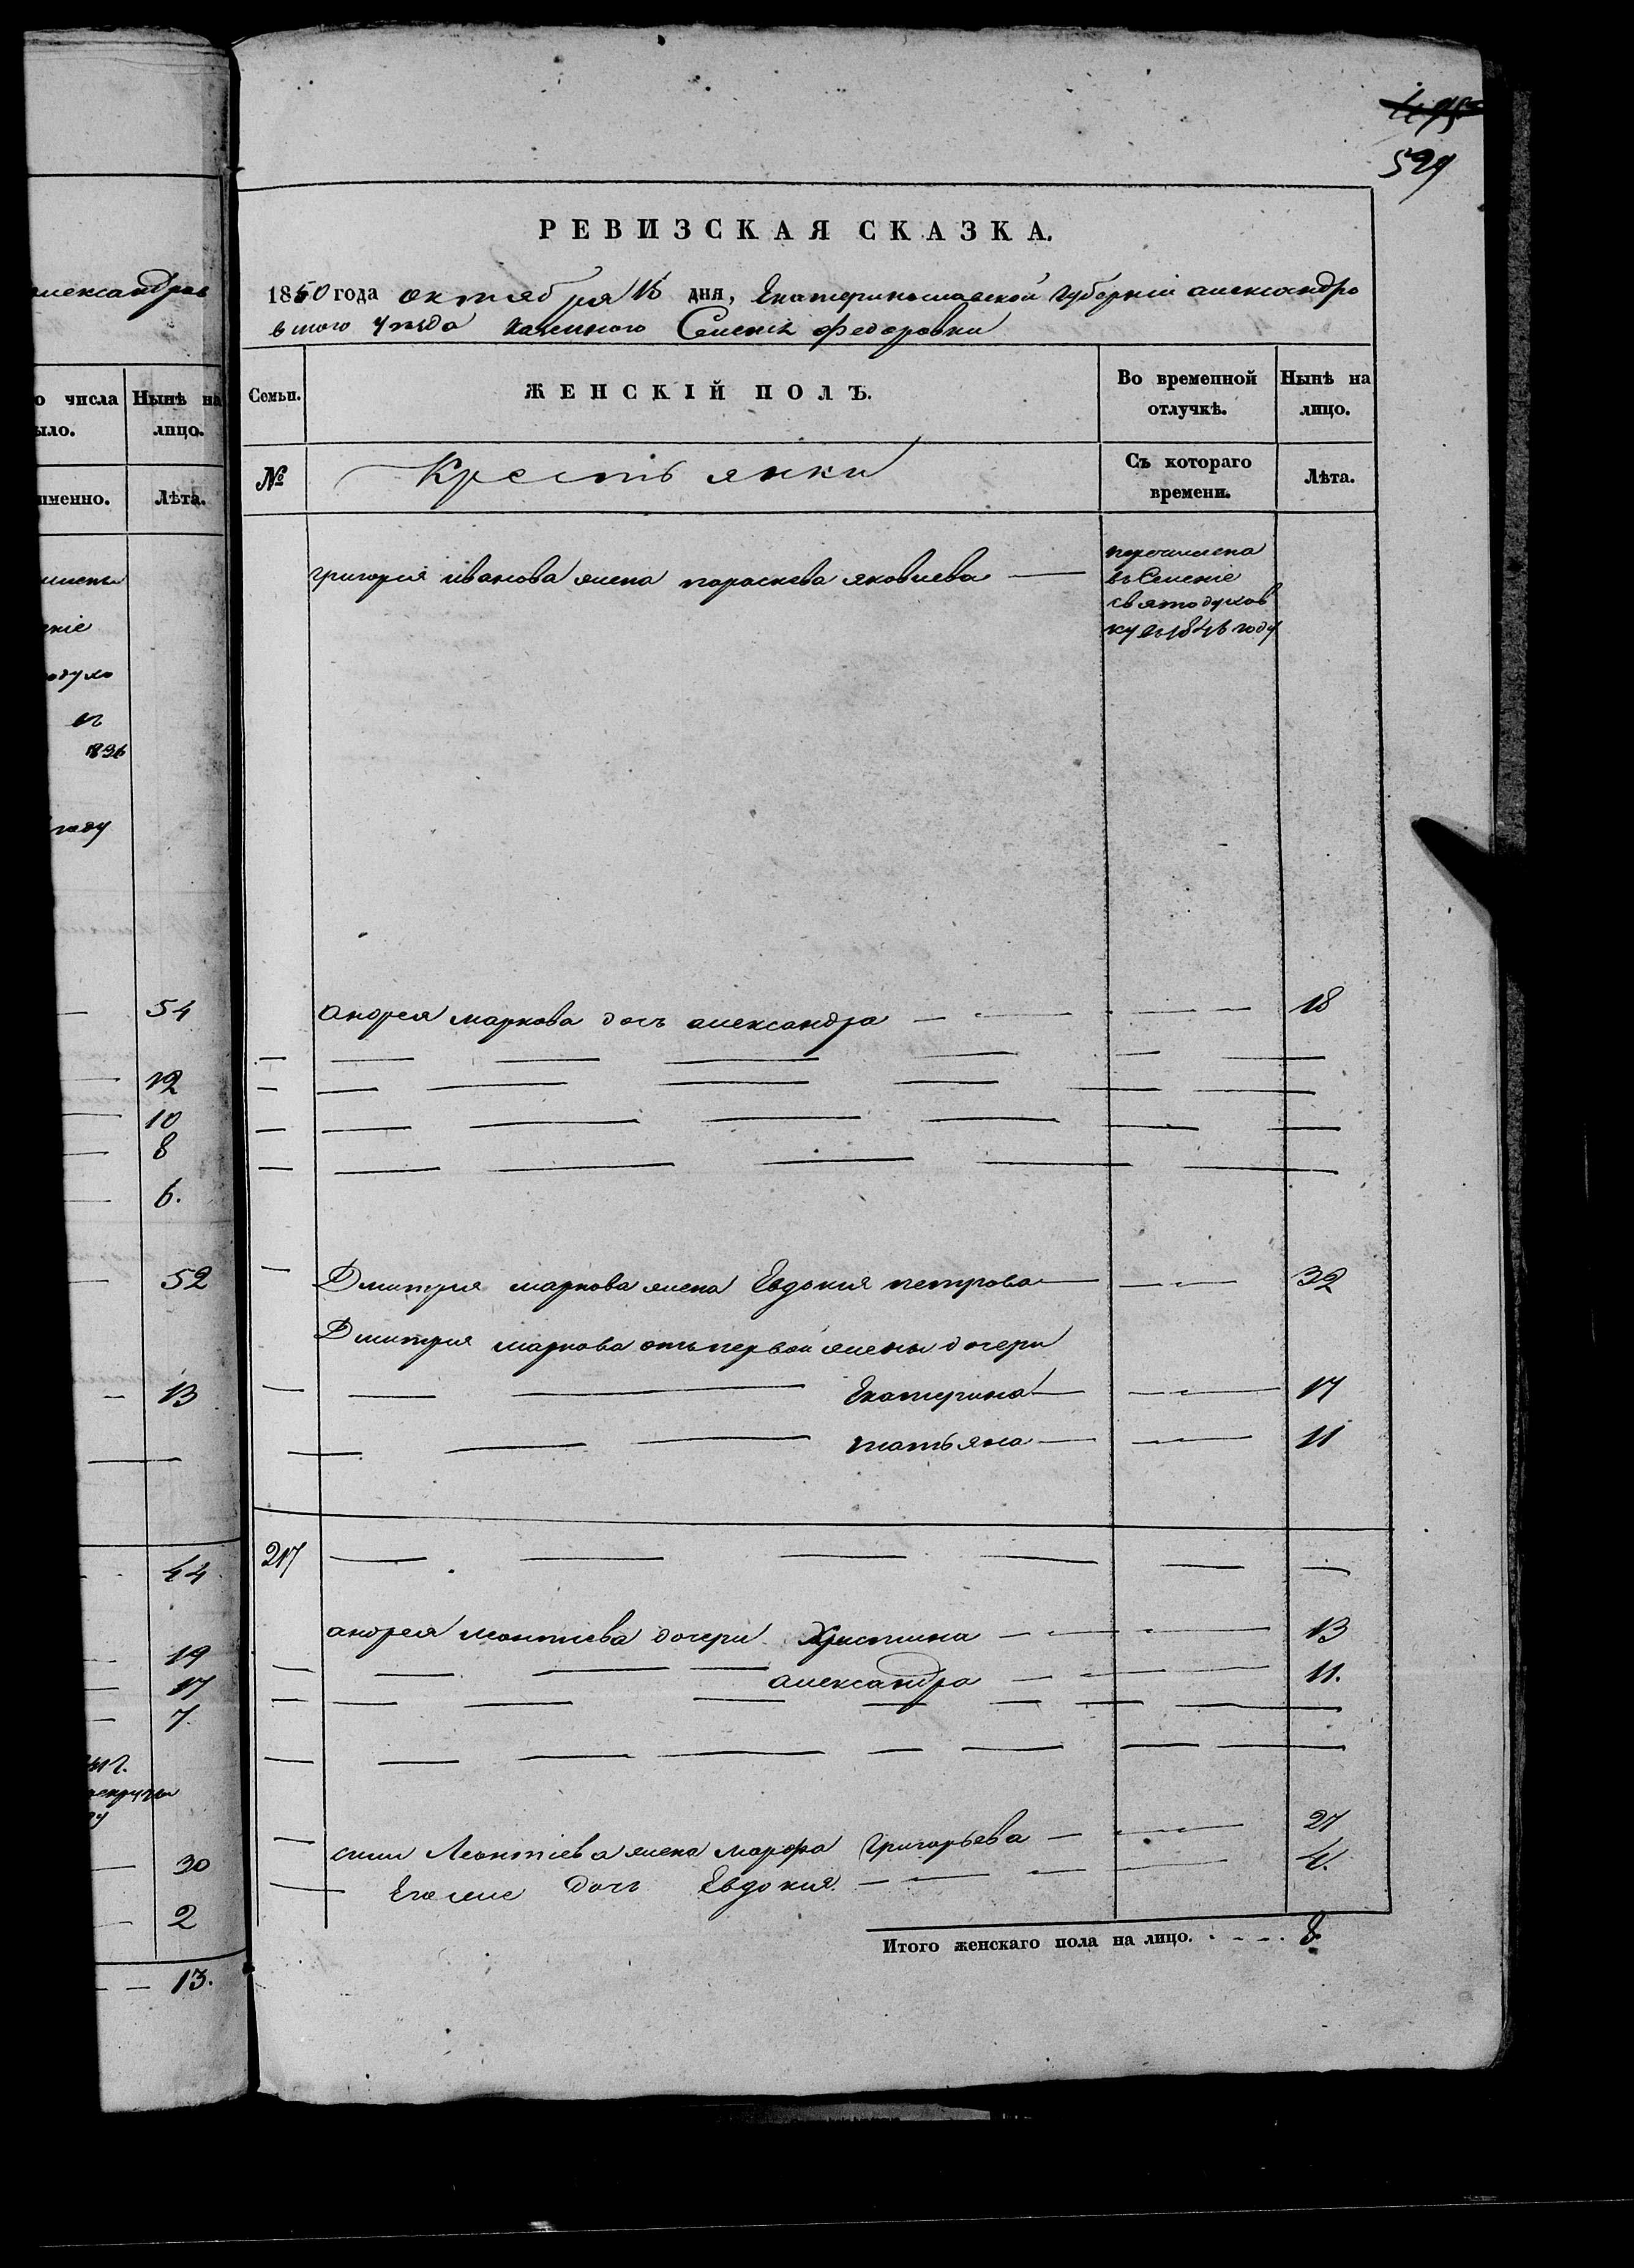 александров
о числа Нынѣ на
ыло. лицо.
именно. Лѣта.
ение
одухо
въ
1836
году
54
12
10
8
6.
52
13
44
19
17
7.
30
2
13.
529
РЕВИЗСКАЯ СКАЗКА.
1850 года октября 16 дня, Екатеринославской губерніи александро
вского уезда казенного Селенія федоровки
Семьи. ЖЕНСКІЙ ПОЛЪ. Во временной отлучкѣ. Нынѣ на лицо.
№ Крестьянки Съ котораго времени. Лѣта.
григория иванова жена параскева яковлева — перечислена
въ Селеніе
святодухов
ку въ 1846 году
андрея маркова дочь александра — 18
Дмитрия маркова жена Евдокия петрова — 32
Дмитрия маркова отъ первой жены дочери
Екатерина — 17
татьяна — 11
217
андрея леонтиева дочери Христина — 13
александра — 11.
Леонтіева жена марфа григорьева — 27
Его же дочь Евдокия — 4.
Итого женскаго пола на лицо. 8.